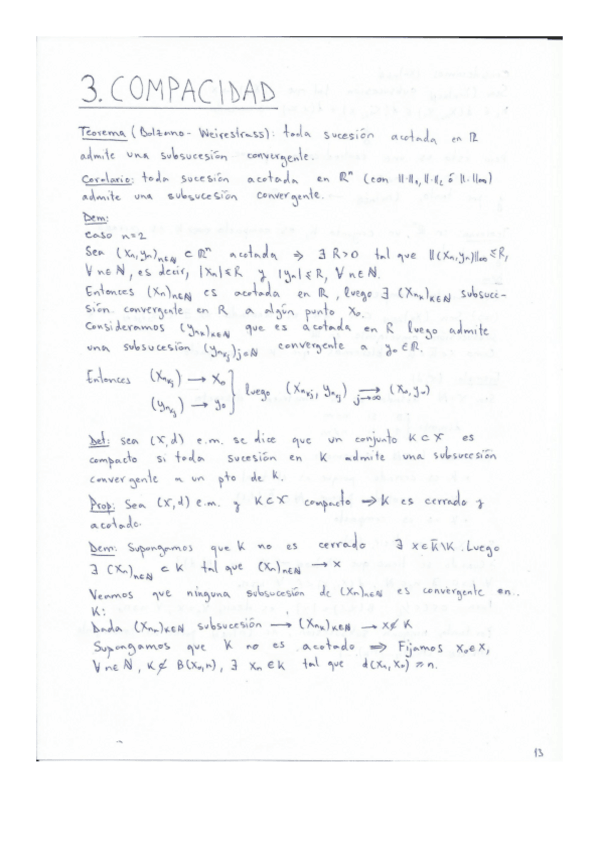 3. COMPACIDAD
Teorema (Bolzano-Weirestrass): toda sucesión acotada en ℝ
admite una subsucesión convergente.
Corolario: toda sucesión acotada en ℝⁿ (con ‖·‖₁, ‖·‖₂ ó ‖·‖∞)
admite una subsucesión convergente.
Dem:
caso n=2
Sea (xₙ,yₙ)ₙ∈ℕ ⊂ ℝⁿ acotada ⇒ ∃ R>0 tal que ‖(xₙ,yₙ)‖∞ ≤ R,
∀n∈ℕ, es decir, |xₙ| ≤ R y |yₙ| ≤ R, ∀n∈ℕ.
Entonces (xₙ)ₙ∈ℕ es acotada en ℝ, luego ∃ (xₙₖ)ₖ∈ℕ subsuce-
sión convergente en ℝ a algún punto x₀.
Consideramos (yₙₖ)ₖ∈ℕ que es acotada en ℝ luego admite
una subsucesión (yₙₖⱼ)ⱼ∈ℕ convergente a y₀∈ℝ.
Entonces (xₙₖⱼ) → x₀
(yₙₖⱼ) → y₀ } luego (xₙₖⱼ, yₙₖⱼ) → (x₀,y₀)
j→∞
Def: sea (X,d) e.m. se dice que un conjunto K⊂X es
compacto si toda sucesión en K admite una subsucesión
convergente a un pto de K.
Prop: Sea (X,d) e.m. y K⊂X compacto ⇒ K es cerrado y
acotado.
Dem: Supongamos que K no es cerrado ∃ x∈K̄\K. Luego
∃ (xₙ)ₙ∈ℕ ⊂ K tal que (xₙ)ₙ∈ℕ → x
Veamos que ninguna subsucesión de (xₙ)ₙ∈ℕ es convergente en
K:
Dada (xₙₖ)ₖ∈ℕ subsucesión → (xₙₖ)ₖ∈ℕ → x∉K
Supongamos que K no es acotado ⇒ Fijamos x₀∈X,
∀n∈ℕ, K⊄B(x₀,n), ∃ xₙ∈K tal que d(xₙ,x₀) ≥ n.
13